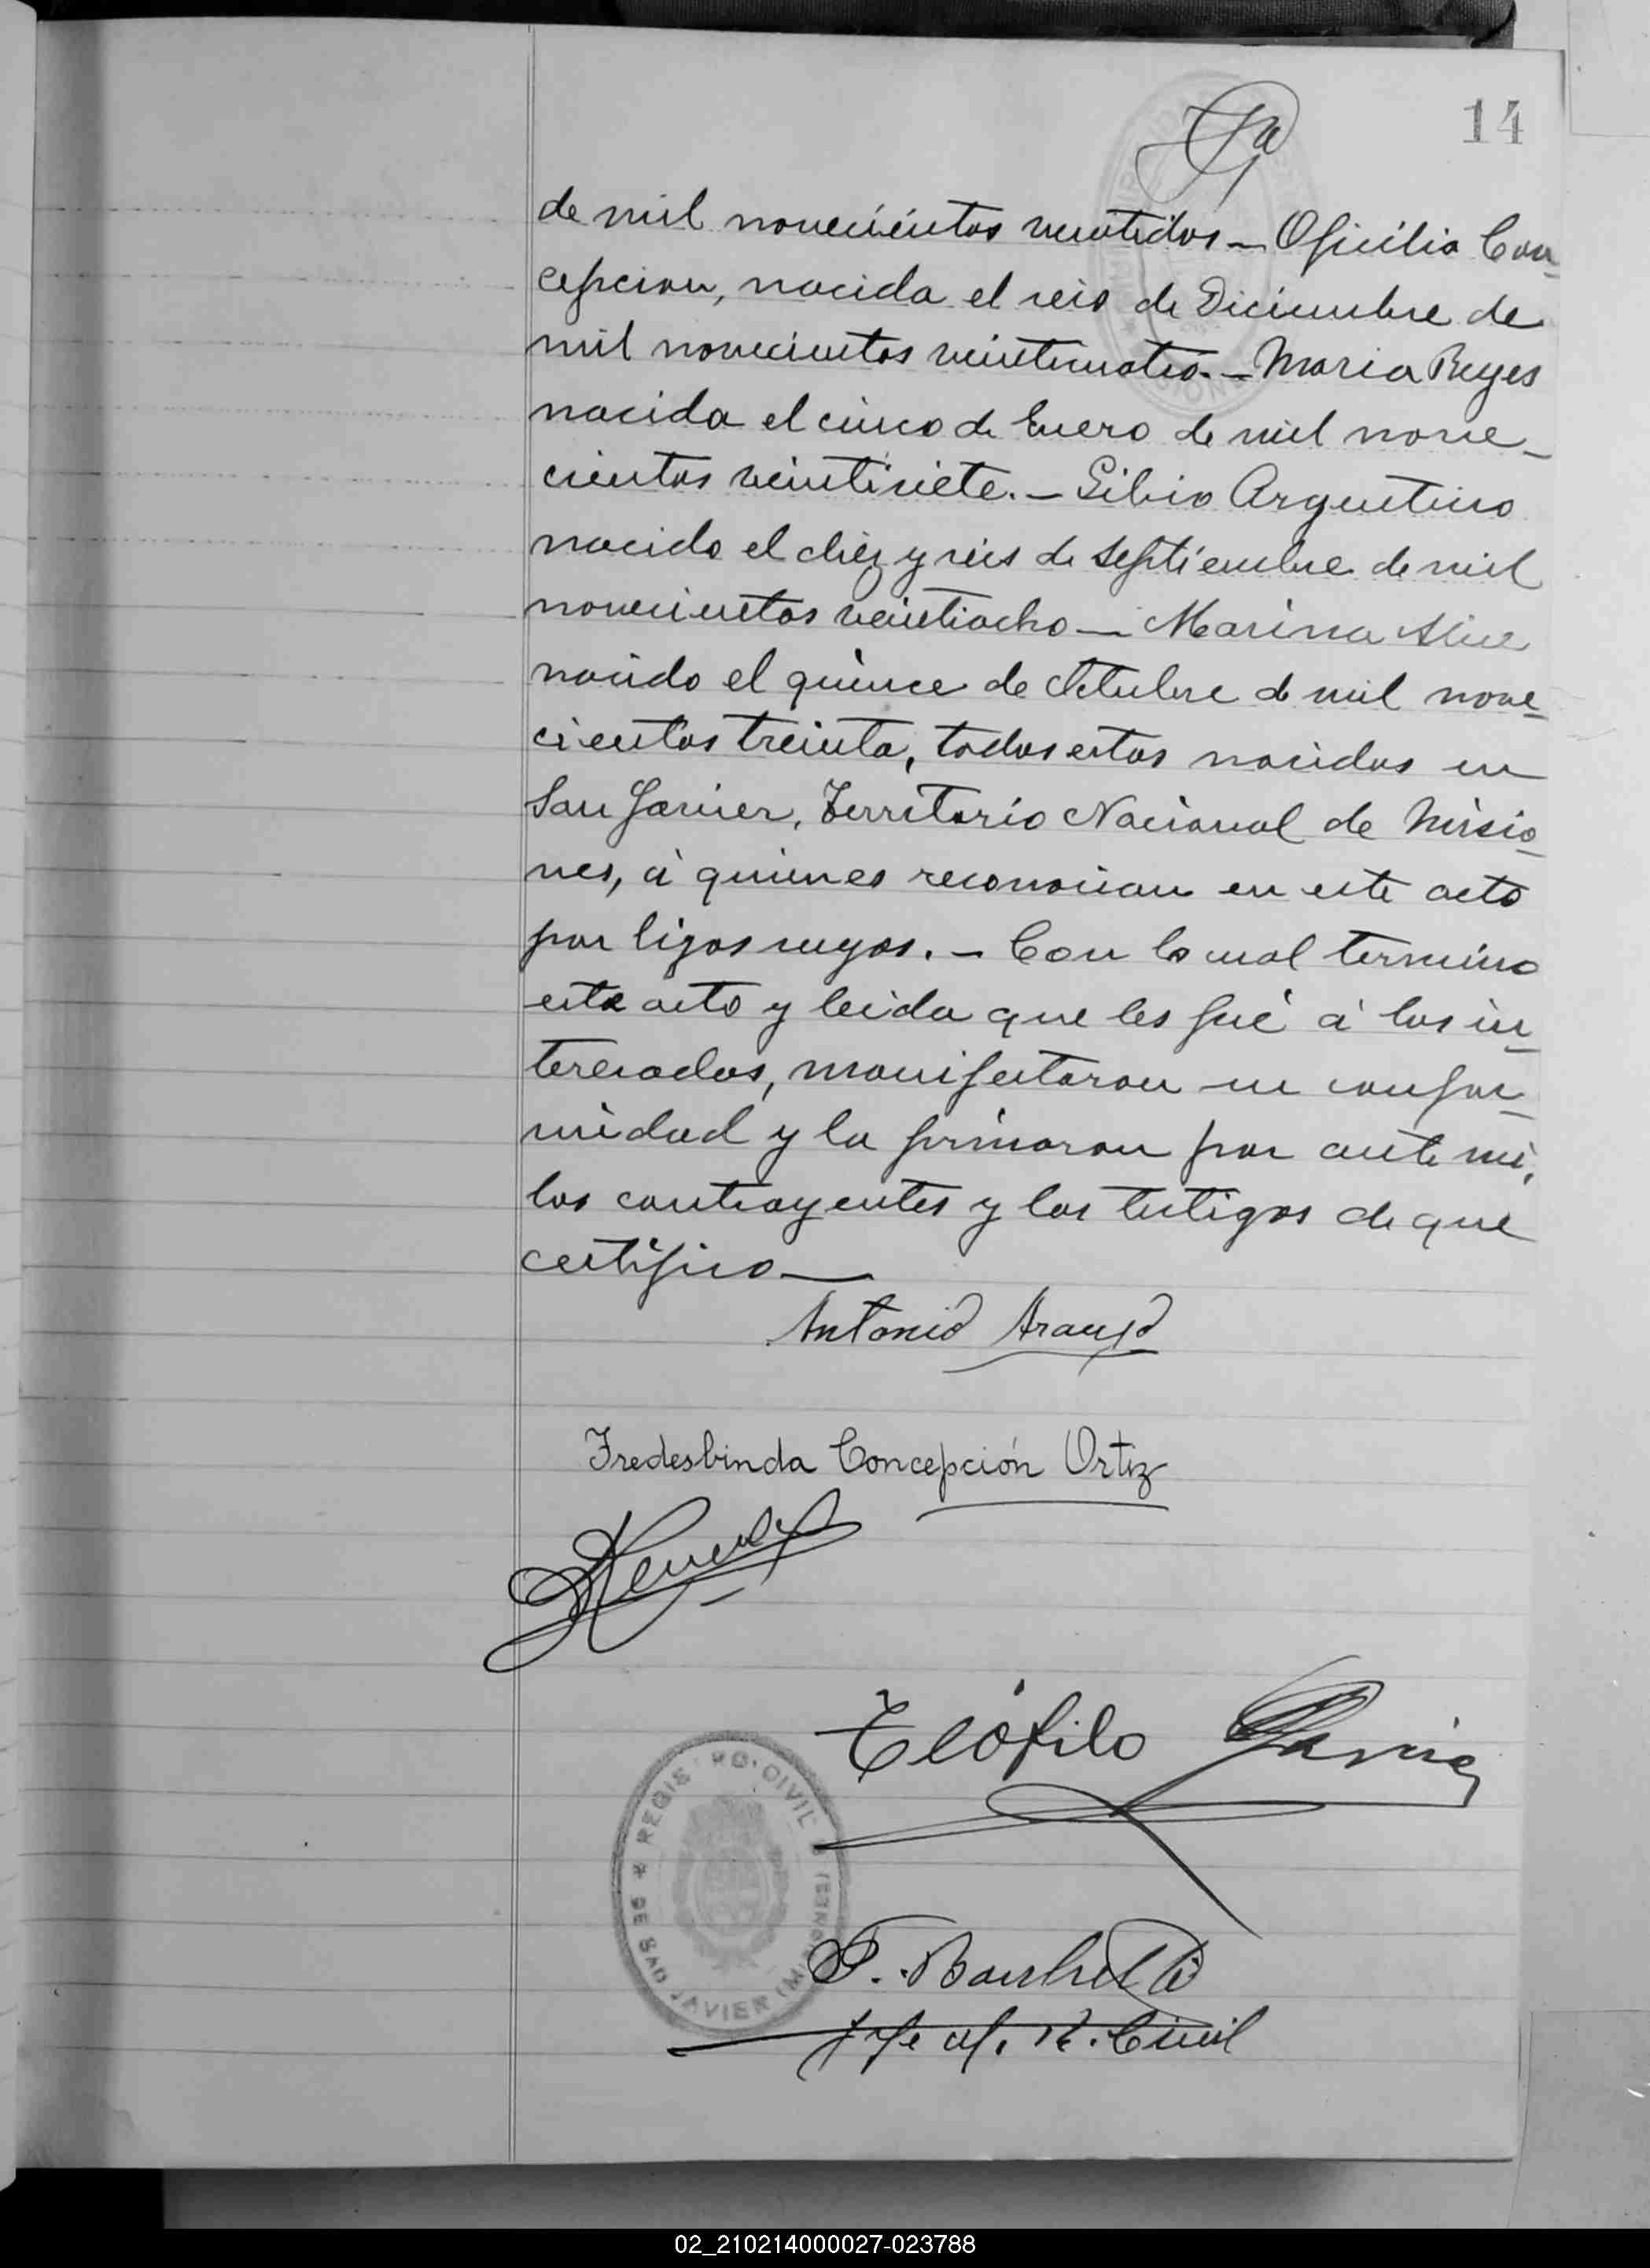 14
de mil novecientos veintidos — Oficilia Con-
cepcion, nacida el seis de Diciembre de
mil novecientos veinticuatro. — Maria Reyes
nacida el cinco de Enero de mil nove-
cientos veintisiete. — Silvio Argentino
nacido el diez y seis de septiembre de mil
novecientos veintiocho — Marina
nacido el quince de Octubre de mil nove-
cientos treinta, todos estos nacidos en
San Javier, Territorio Nacional de Misio-
nes, á quienes reconocian en este acto
por hijos suyos. — Con lo cual termino
este acto y leida que les fué á los in-
teresados, manifestaron su confor-
midad y la firmaron por ante mi,
los contrayentes y los testigos de que
certifico —
Antonio Araujo
Fredesbinda Concepción Ortiz
Teófilo Garcia
REGISTRO CIVIL
DE SAN JAVIER (MISIONES)
Jefe of. R. Civil
02_210214000027-023788